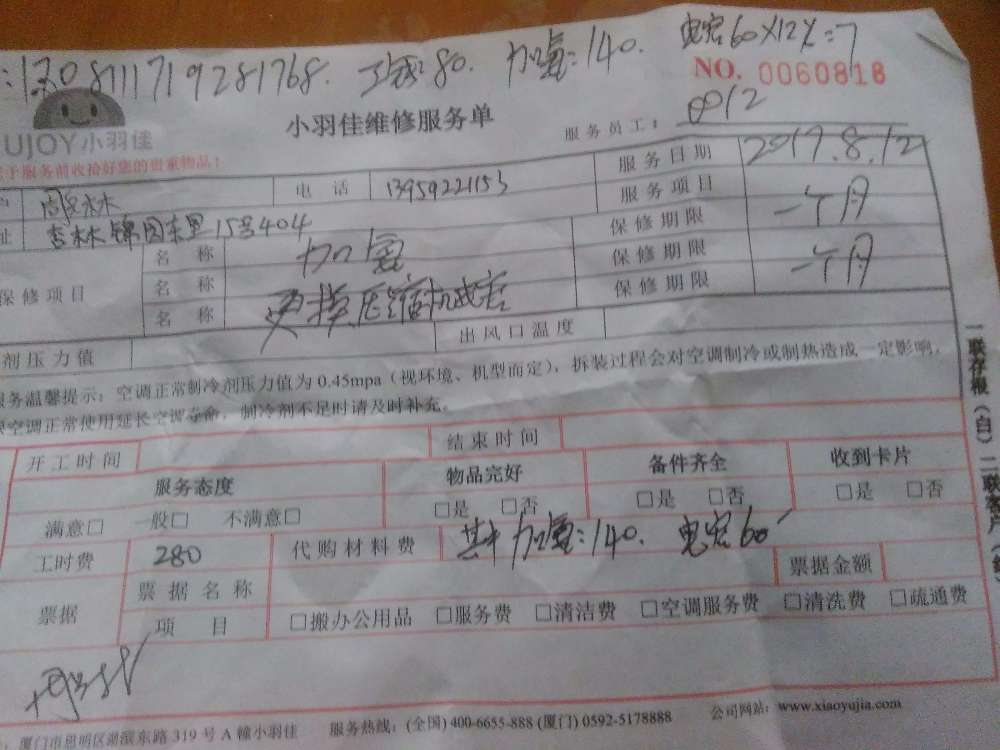 :1308111719281768. 工钱:80. 加氟:140. 电容60×12%=7
NO. 0060818
UJOY小羽佳
小羽佳维修服务单
服务员工: 0012
于服务前收拾好您的贵重物品!
电 话 13959221153 服务日期 2017.8.12
址 杏林锦园东里15号404 服务项目
保修项目 名 称 加氟 保修期限 一个月
名 称 更换压缩机或者 保修期限 一个月
名 称 保修期限
剂压力值 出风口温度
服务温馨提示:空调正常制冷剂压力值为0.45mpa(视环境、机型而定),拆装过程会对空调制冷或制热造成一定影响,
空调正常使用延长空调寿命,制冷剂不足时请及时补充。
开工时间 结束时间
服务态度 物品完好 备件齐全 收到卡片
满意□ 一般□ 不满意□ □是 □否 □是 □否 □是 □否
工时费 280 代购材料费 其中加氟:140. 电容60
票据 票据名称 票据金额
项 目 □搬办公用品 □服务费 □清洁费 □空调服务费 □清洗费 □疏通费
:厦门市思明区湖滨东路319号A幢小羽佳 服务热线:(全国)400-6655-888 (厦门)0592-5178888 公司网站:www.xiaoyujia.com
一联存根(白)二联客户(